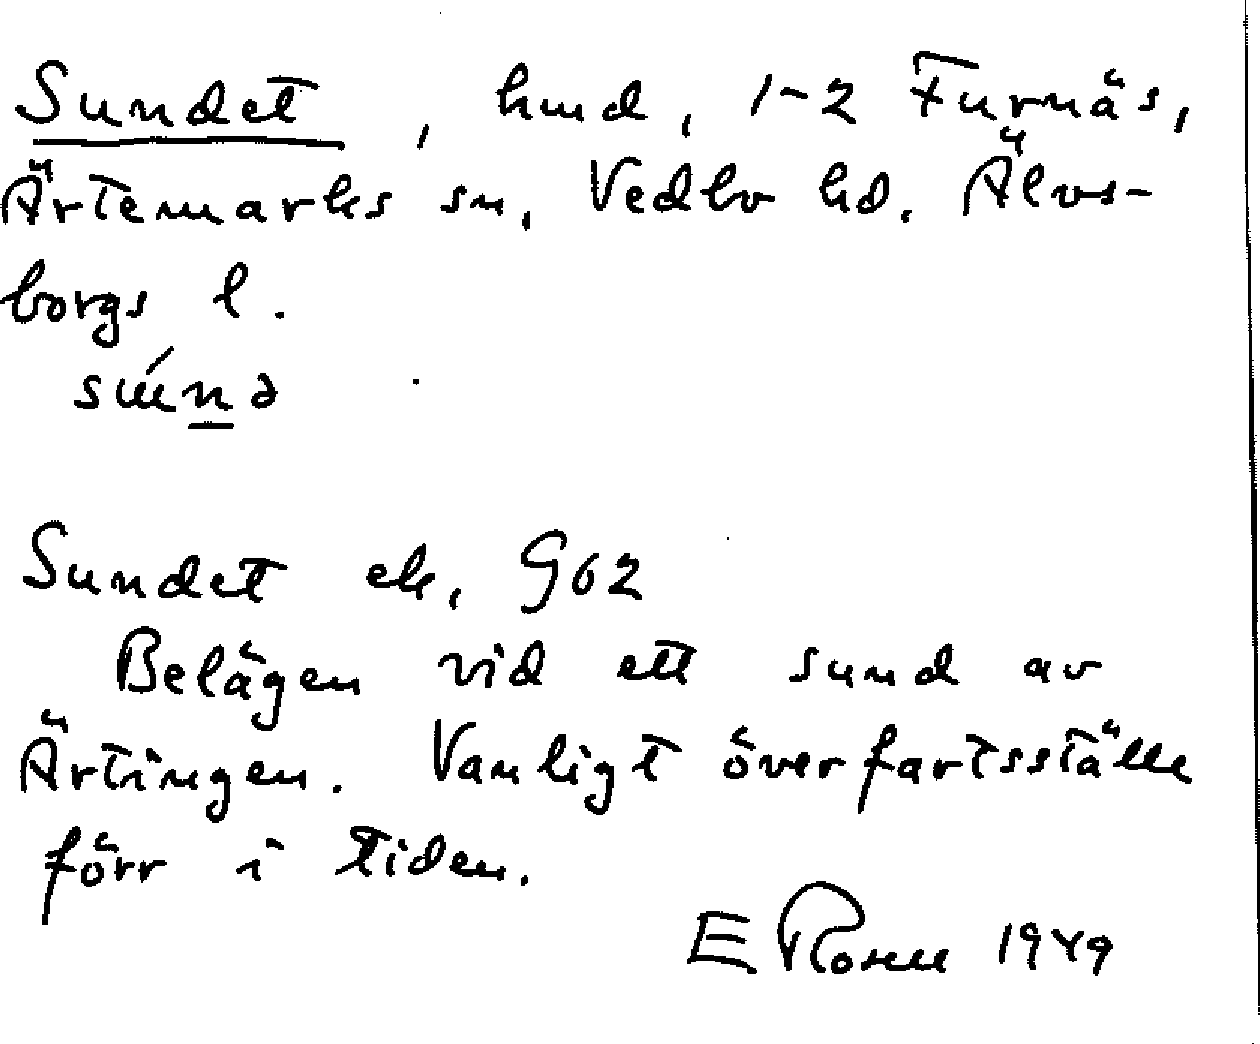 Sundet, hmd, 1-2 Furnäs,
Ärtemarks sn, Vedbo hd. Älvs-
borgs l.
Sundet ek, G62
Belägen vid ett sund av
Ärtingen. Vanligt överfartsställe
förr i tiden.
E Rosell 1949